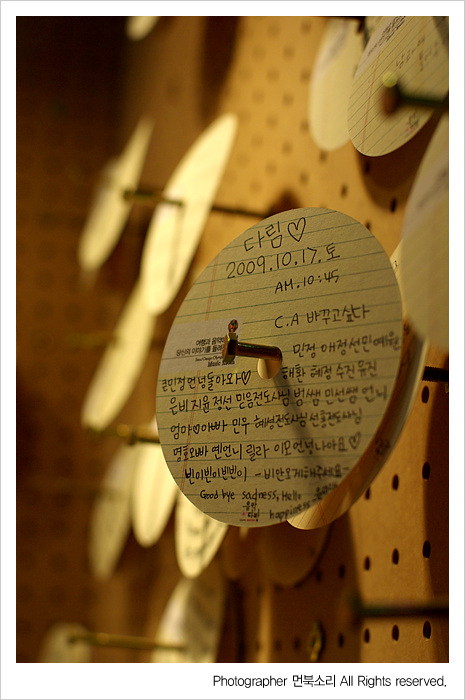 다림♡
2009.10.17.토
AM.10:45
C.A 바꾸고싶다
여행과 음악
당신의 이야기를 들려
민정 애정선민예원
민정언넝돌아와♡ 태환 혜정 수진 유진
은비지윤정선 믿음전도사님 범쌤 민선쌤 언니
엄마♡아빠 민우 혜성전도사님 선홍전도사님
명호오빠 옌언니 릴라 이모언넝나아요♡
빈이빈이빈빈이 -비안오게해주세요-
Good bye sadness, Hello
happiness
Photographer 먼북소리 All Rights reserved.